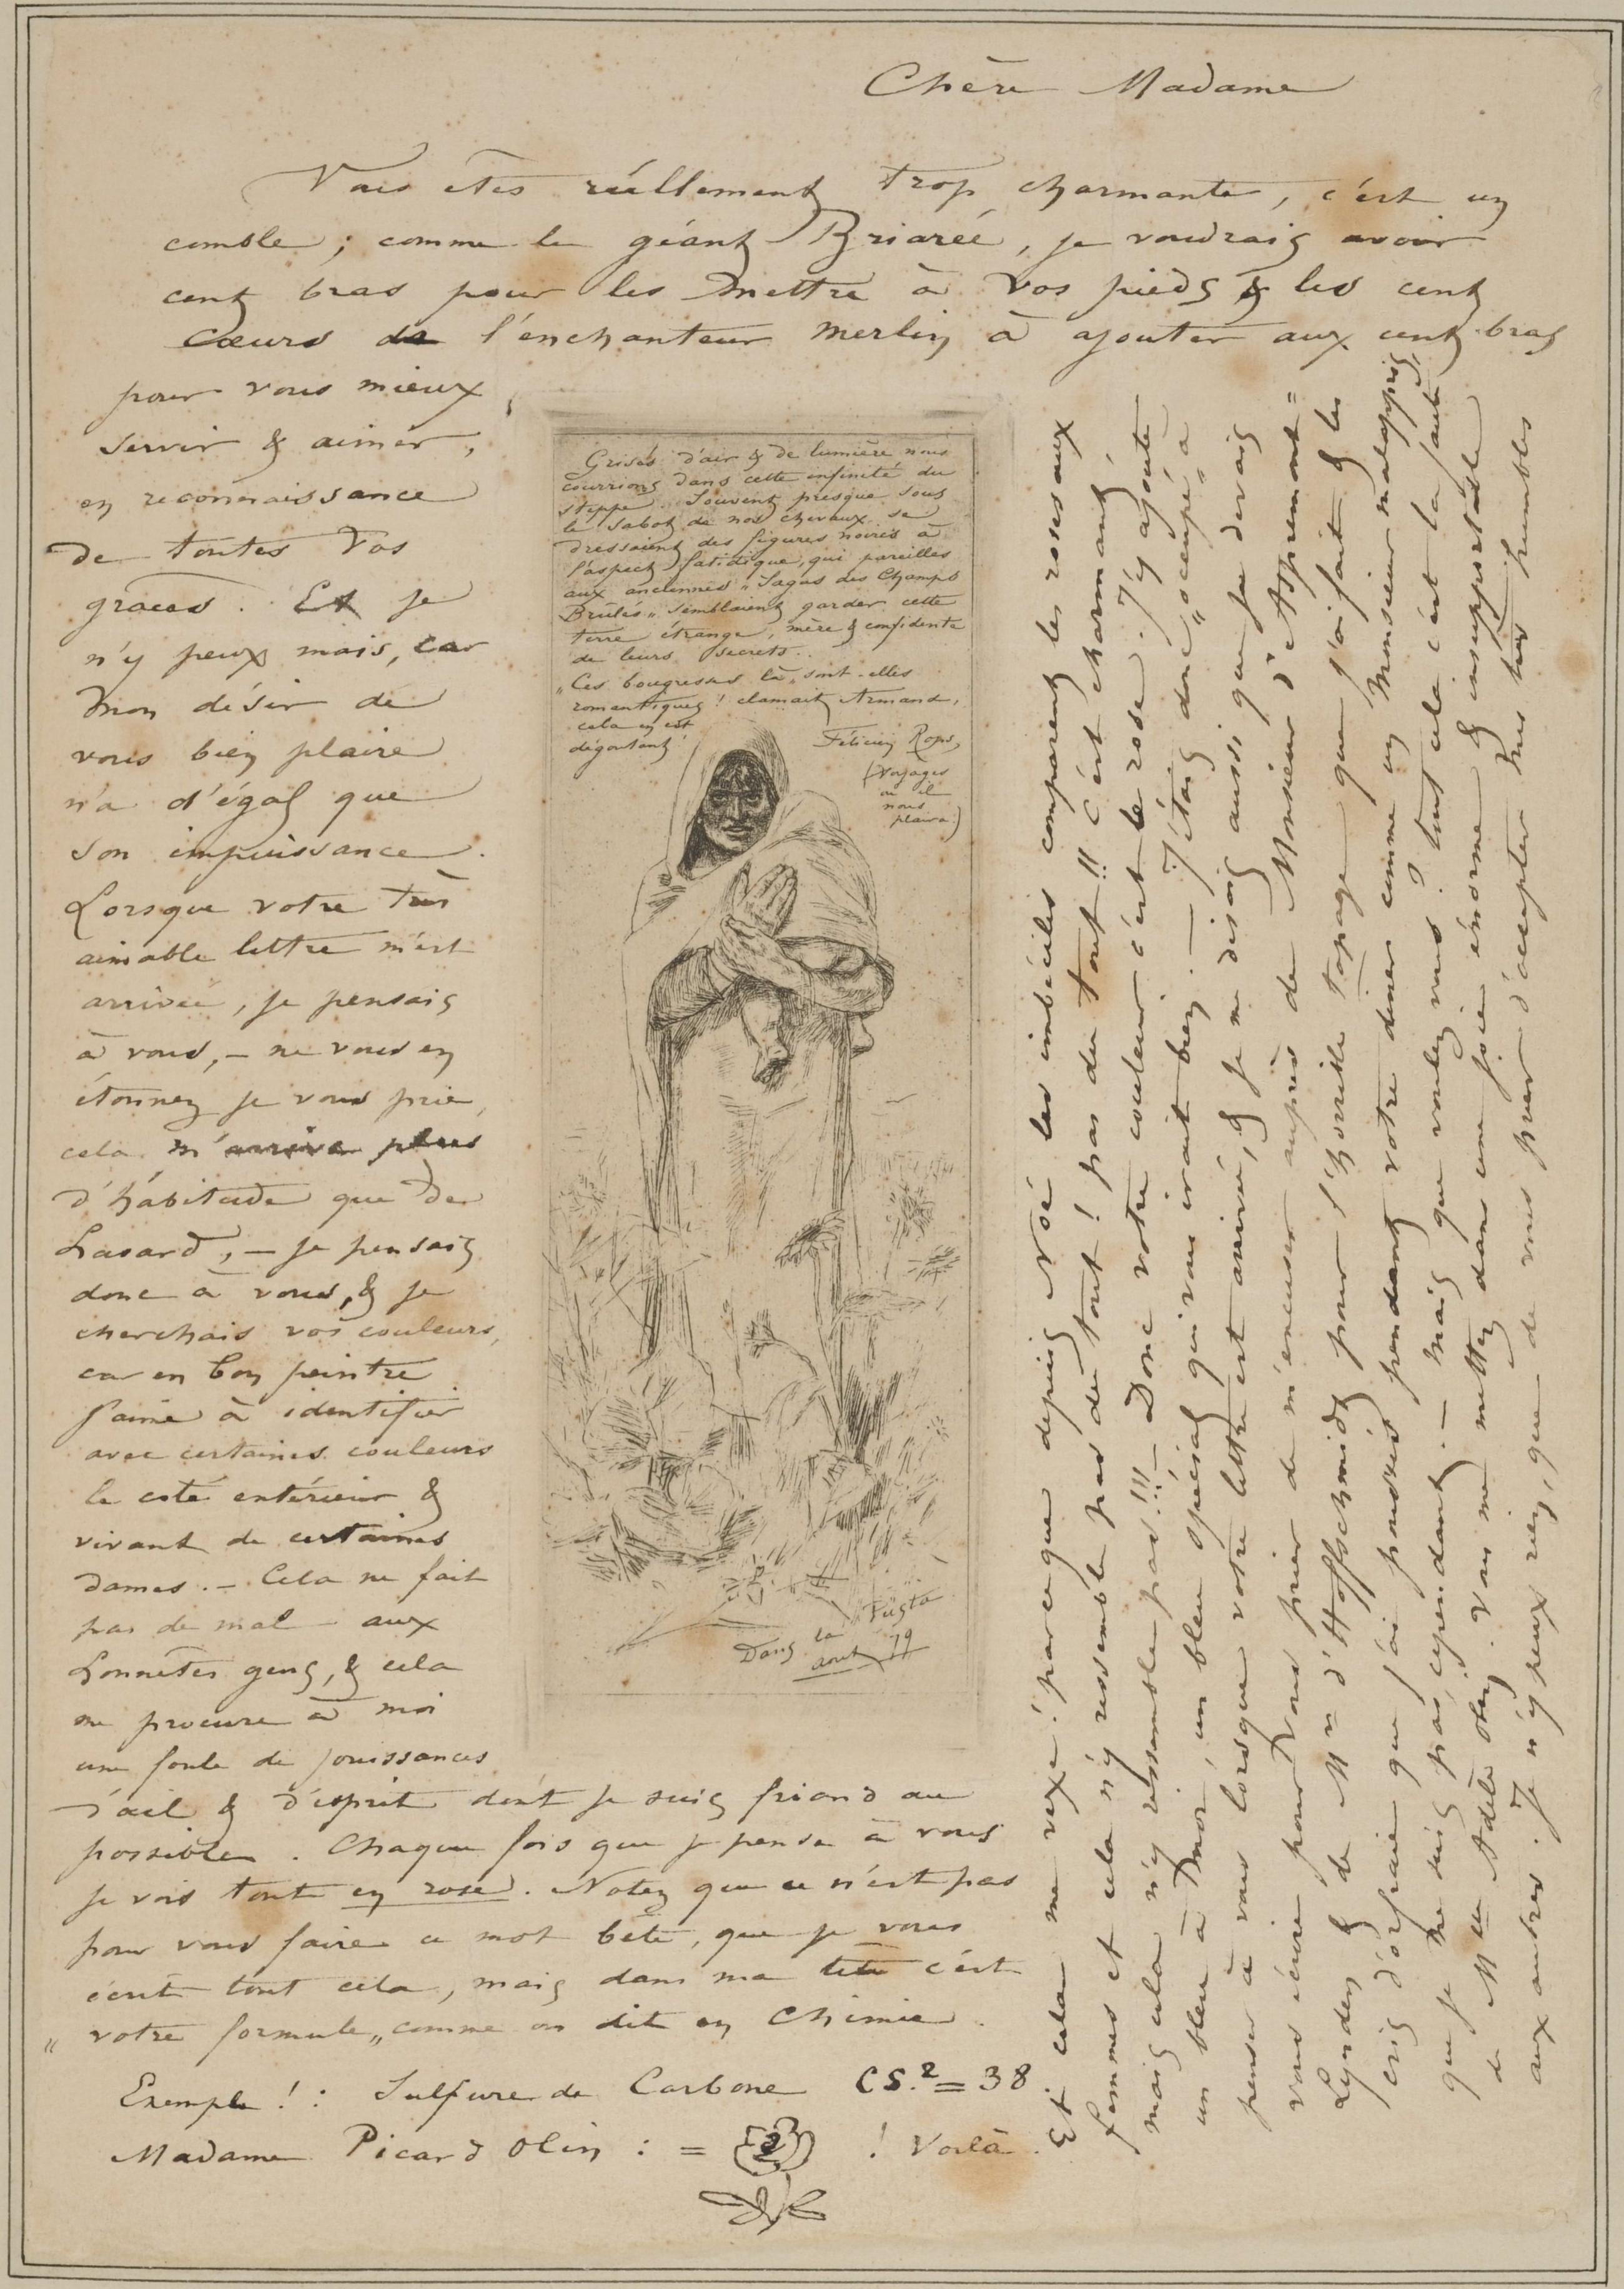 Chère Madame
Vous êtes réellement trop charmante, c'est un
comble ; comme le géant Briarée, je voudrais avoir
cent bras pour les mettre à vos pieds & les cent
cœurs de l'enchanteur Merlin à ajouter aux cent bras
pour vous mieux
servir & aimer,
en reconnaissance
de toutes vos
graces. Et je
n'y peux mais, car
mon désir de
vous bien plaire
n'a d'égal que
son impuissance.
Lorsque votre très
aimable lettre m'est
arrivée, je pensais
à vous, – ne vous en
étonnez je vous prie,
cela m'arrive plus
d'habitude que de
hasard, – je pensais
donc à vous, & je
cherchais vos couleurs,
car en bon peintre
j'aime à identifier
avec certaines couleurs
le coté extérieur &
vivant de certaines
dames. – Cela ne fait
pas de mal aux
honnêtes gens, & cela
me procure à moi
une foule de jouissances
d'œil & d'esprit dont je suis friand au
possible. Chaque fois que je pense à vous
je vois tout en rose. Notez que ce n'est pas
pour vous faire ce mot bête, que je vous
écrit tout cela, mais dans ma tête c'est
„ votre formule „ comme on dit en Chimie.
Exemple ! : Sulfure de Carbone CS.² = 38
Madame Picard Olin : = ! Voilà.
Grisés d'air & de lumière nous
courrions dans cette infinité du
steppe. Souvent presque sous
le sabot de nos chevaux se
dressaient des figures noires à
l'aspect fatidique, qui pareilles
aux anciennes „ Sagas des Champs
Brûlés „ semblaient garder cette
terre étrange, mère & confidente
de leurs secrets..
„ Ces bougresses là „ sont-elles
romantiques ! clamait Armand,
cela en est
dégoutant !
Félicien Rops,
(Voyages
où il
nous
plaira.)
Dans la Puszta
aout 79
Et cela me vexe ! parceque depuis Noé les imbéciles comparent les roses aux
femmes et cela n'y ressemble pas du tout ! pas du tout !! c'est charmant
mais cela n'y ressemble pas !!! – Donc votre couleur c'est le rose. J'y ajoute
un bleu à moi, un bleu spécial qui vous irait bien. – J'étais donc „ occupé „ à
penser à vous lorsque votre lettre est arrivée, & je me disais aussi que je devais
vous écrire pour vous prier de m'excuser auprès de Monsieur d'Aspremont =
Lynden & de Mr d'Hoffschmidt pour l'horrible tapage que j'ai fait & les
cris d'orfraie que j'ai poussés pendant votre diner comme un Monsieur malappris
que je ne suis pas cependant. – Mais que voulez vous ? tout cela c'est la faute
de Mlle Adèle Olin. Vous me mettez dans une joie énorme & insupportable
aux autres. Je n'y peux rien, que de vous prier d'accepter mes très humbles